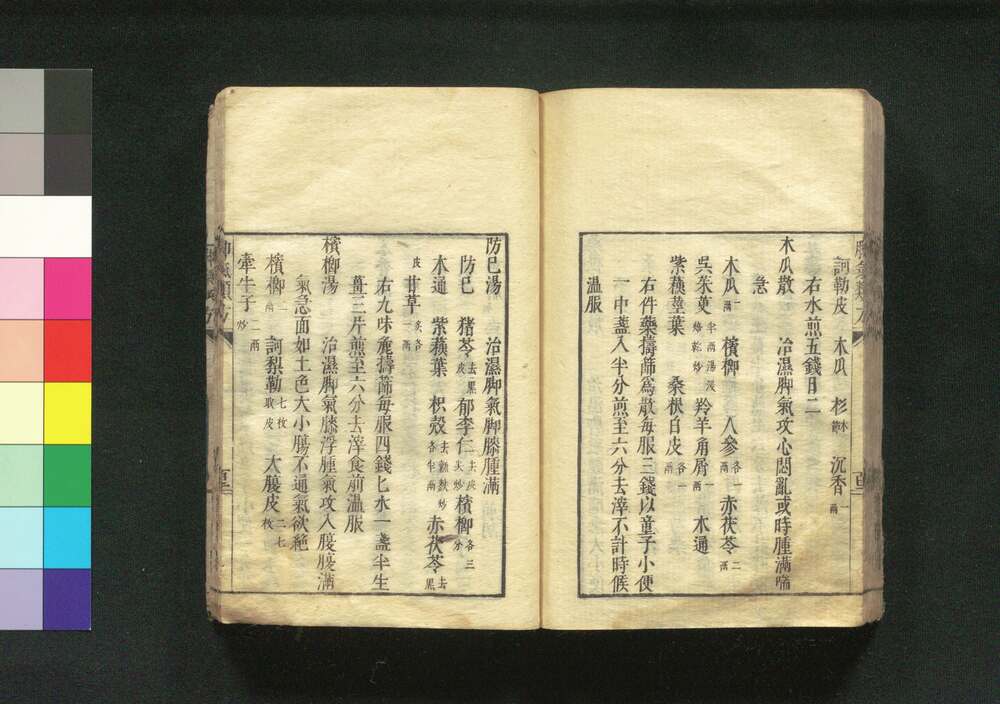 訶勒皮 木瓜 杉木節 沉香一兩
右水煎五錢日二
木瓜散 治濕脚氣攻心悶亂或時腫滿喘
急
木瓜一兩 檳榔 人參各一兩 赤茯苓二兩
吳茱萸半兩湯浸焙乾炒 羚羊角屑一兩 木通
紫蘓莖葉 桑根白皮各一兩
右件藥擣篩爲散每服三錢以童子小便
一中盞入半分煎至六分去滓不計時候
溫服
防巳湯 治濕脚氣脚膝腫滿
防巳 猪苓去黑皮 郁李仁去皮尖炒 檳榔各三分
木通 紫蘓葉 枳殼去瓤麩炒各半兩 赤茯苓去黑
皮 甘草炙各一兩
右九味麁擣篩每服四錢匕水一盞半生
薑三片煎至六分去滓食前溫服
檳榔湯 治濕脚氣膝浮腫氣攻入腹腹滿
氣急面如土色大小腸不通氣欲絶
檳榔二兩 訶梨勒七枚取皮 大腹皮二七枚
牽牛子二兩炒